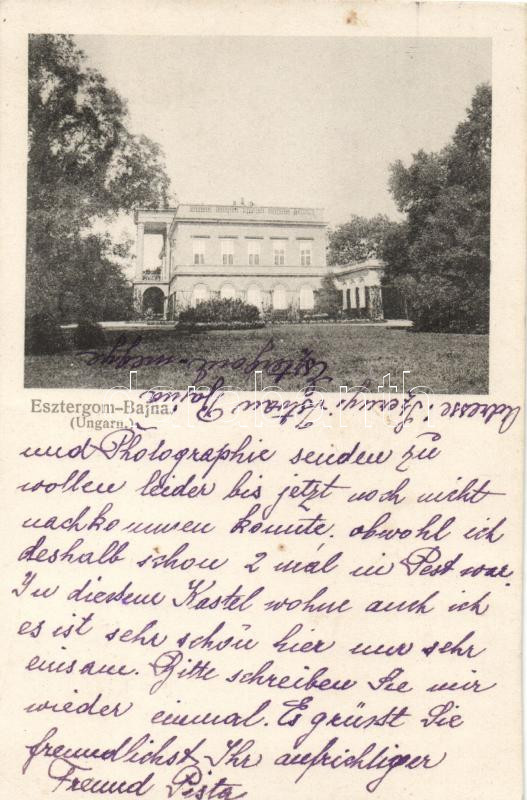 Esztergom–Bajna.
(Ungarn.)
Adresse Istvan Bajna
Esztergom - megye
und Photographie senden zu
wollen leider bis jetzt noch nicht
nachkommen konnte. obwohl ich
deshalb schon 2 mal in Pest war.
In diesem Kastel wohne auch ich
es ist sehr schön hier nur sehr
einsam. Bitte schreiben Sie mir
wieder einmal. Es grüsst Sie
freundlichst Ihr aufrichtiger
Freund Pista